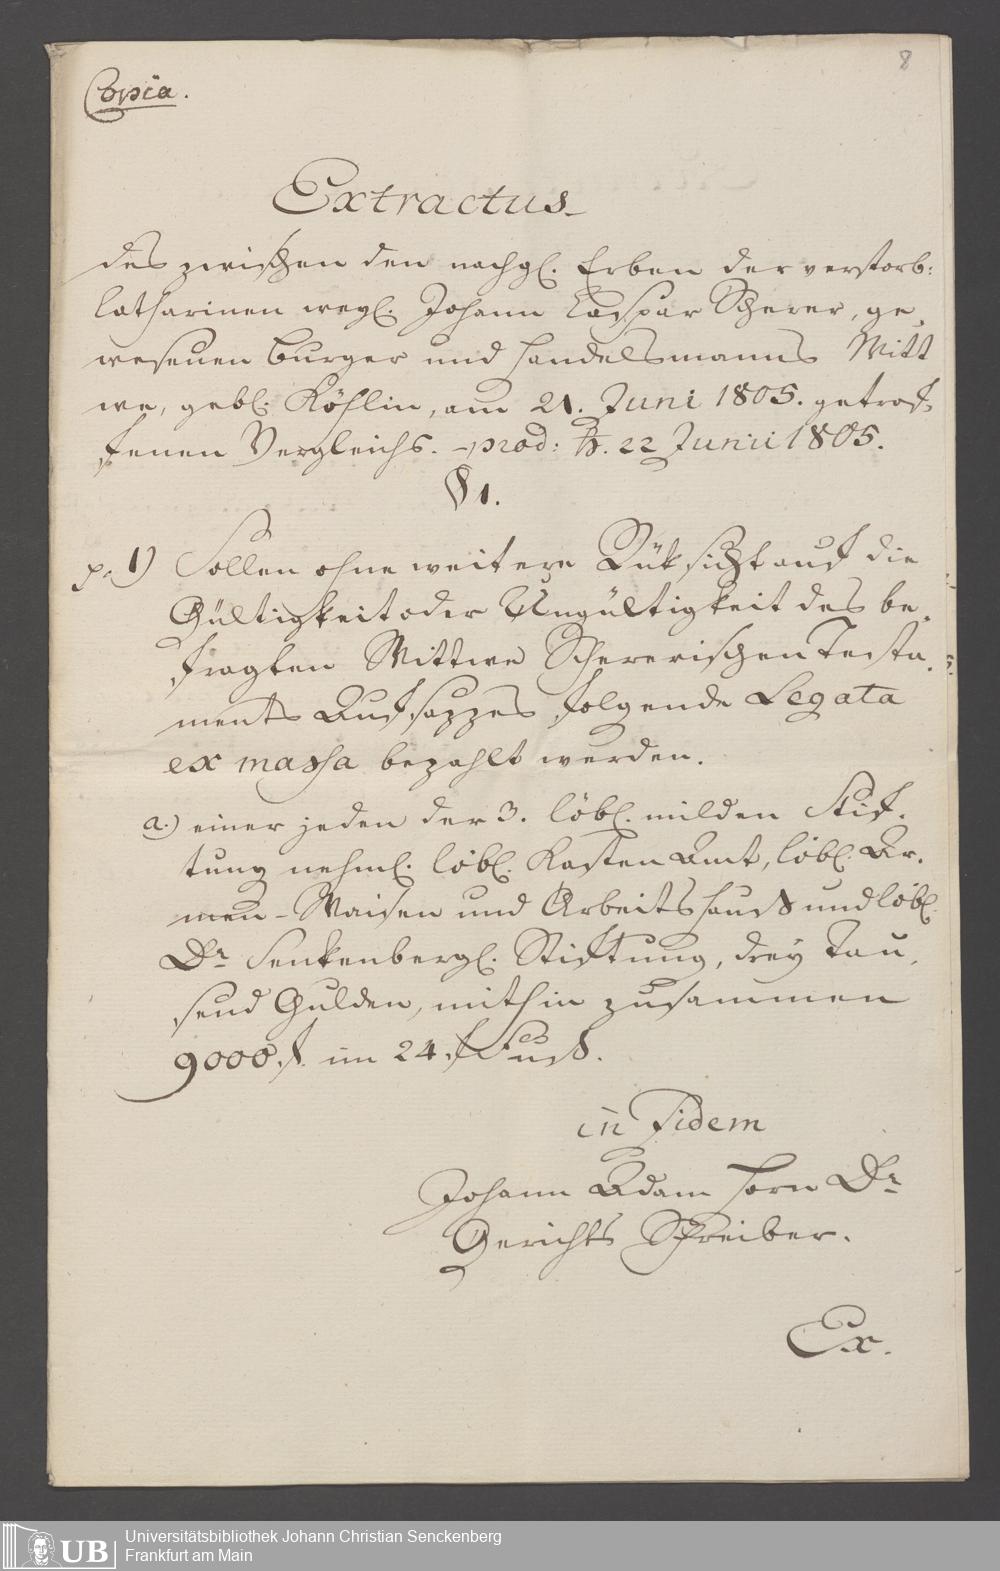 8
Copia.
Extractus
des zwischen den nachgl. Erben der verstorb:
Catharinen weyl. Johann Caspar Scherer, ge„
wesenen burger und handelsmanns Witt
we, gebl. Röslin, am 21. Juni 1805. getrof„
fenen Vergleichs. - prod: 22 Junii 1805.
§ 1.
p. 1) Sollen ohne weitere Rüksicht auf die
Gültigkeit oder Ungültigkeit des be„
fragten Wittwe Schererischen Testa„
ments Aufsazzes folgende Legata
ex massa bezahlt werden.
a.) einer jeden der 3. löbl. milden Stif„
tung nehml. löbl. Kasten Amt, löbl. Ar„
men- Waisen und Arbeitshauß und löbl.
Dr. Senkenbergl. Stiftung, drey Tau„
send Gulden, mithin zusammen
9000 f. im 24. f Fuß.
in Fidem
Johann Adam Horn Dr.
Gerichts Schreiber.
Ex.
UB
Universitätsbibliothek Johann Christian Senckenberg
Frankfurt am Main